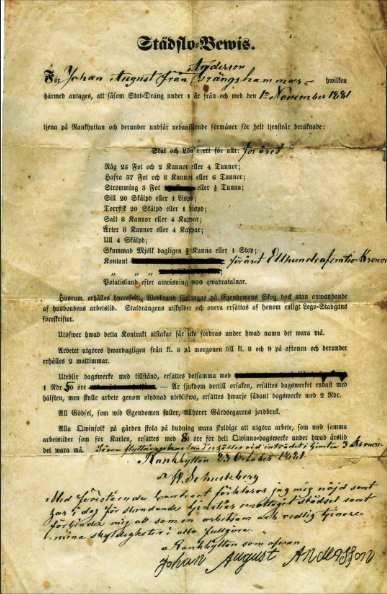 Städslo-Bewis.
Anderson
För Johan August från Trångshammar hwilken
härmed antages, att såsom Stat-Dräng under 1 år från och med den 1 November 1881
tjena på Rankhyttan och derunder undfår nedanstående förmåner för helt tjensteår beräknade:
Stat och Lön i ett för allt: för året
Råg 25 Fot och 2 Kannor eller 4 Tunnor;
Hafra 37 Fot och 8 Kannor eller 6 Tunnor;
Strömming 5 Fot eller Tunna;
Sill 20 Skålpd eller 1 Lispd;
Torrfisk 20 Skålpd eller 1 Lispd;
Salt 8 Kannor eller 4 Kappar;
Ärter 8 Kannor eller 4 Kappar;
Ull 4 Skålpd;
Skummad Mjölk dagligen Kanna eller 1 Stop;
Kontant för året Ett hundra femtio Kronor
Potatisland efter anwisning 800 qwadratalnar.
Hwarförutan erhålles husrum, Wedbrand å Egendomens Skog dock utan anwändande
af husbondens arbetstid. Statdrängens utskylder och onera erfattas af honom enligt Lego-Stadgans
föreskrifter.
Utöfwer hwad detta Kontrakt utstakar får icke fordras under hwad namn det wara må.
Arbetet utgöres hwardagligen från kl. 5 på morgonen till kl. 8 och 9 på aftonen och derunder
erhålles 2 mattimmar.
Uteblir dagswerke med tillstånd, ersättes detsamma med
1 Rdr 50 öre Är sjukdom dertill orsaken, ersättes dagswerket endast med
hälften, men skulle arbete genom olydnad utebliswa, ersättes hwarje sådant dagswerke med 2 Rdr.
All Gödsel, som wid Egendomen faller, tillhörer Gårdsegarens jordbruk.
Alla Qwinfolk på gården skola på budning wara skyldige att utgöra arbete, som med samma
arbetstider som för Karlen, ersättes med öre för helt Qwinno-dagswerke under hwad årstid
det wara må.
3 Kronor
Rankhyttan 23 October 1881.
Med förestående kontract förklarar jag mig nöjd samt
förbinder mig att såsom arbetsam och redlig tjenare
mina skyldigheter i allo fullgöra.
Rankhyttan som ofvan
Johan August Andersson